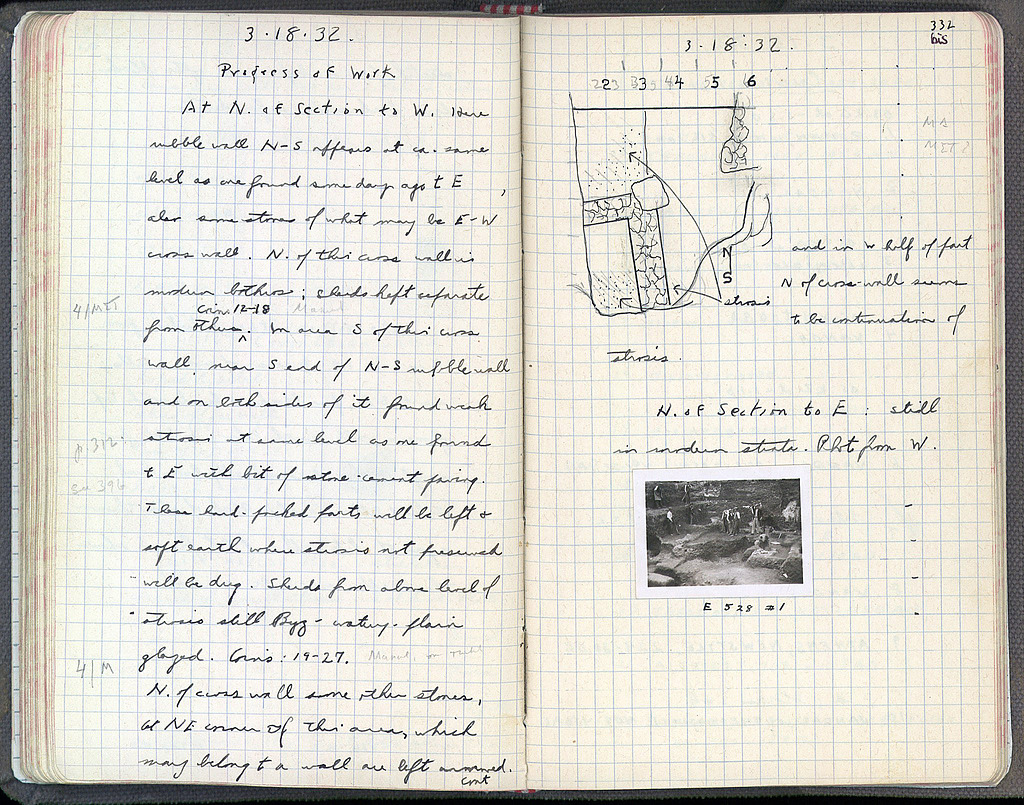 3·18·32.
Progress of Work
At N. of Section to W. Here
rubble wall N-S appears at ca. same
level as one found some days ago to E,
also some stones of what may be E-W
cross wall. N. of this cross wall is
modern bothros; sherds kept separate
4/MT
Coins 12-18
from others. In area S of this cross
wall, near S end of N-S rubble wall
and on both sides of it found weak
p. 312.
strosis at same level as one found
to E with bit of stone-cement paving.
See 396
These hard-packed parts will be left &
soft earth where strosis not preserved
will be dug. Sherds from above level of
strosis still Byz - watery - plain
glazed. Coins: 19-27.
4/M
N. of cross wall some other stones,
at NE corner of this area, which
may belong to a wall are left unmoved.
cont
332
bis
3·18·32.
22 33 44 55 6
MA
MET?
N
S
strosis
and in W half of part
N of cross-wall seems
to be continuation of
strosis.
N. of Section to E: still
in modern strata. Phot from W.
E 528 #1